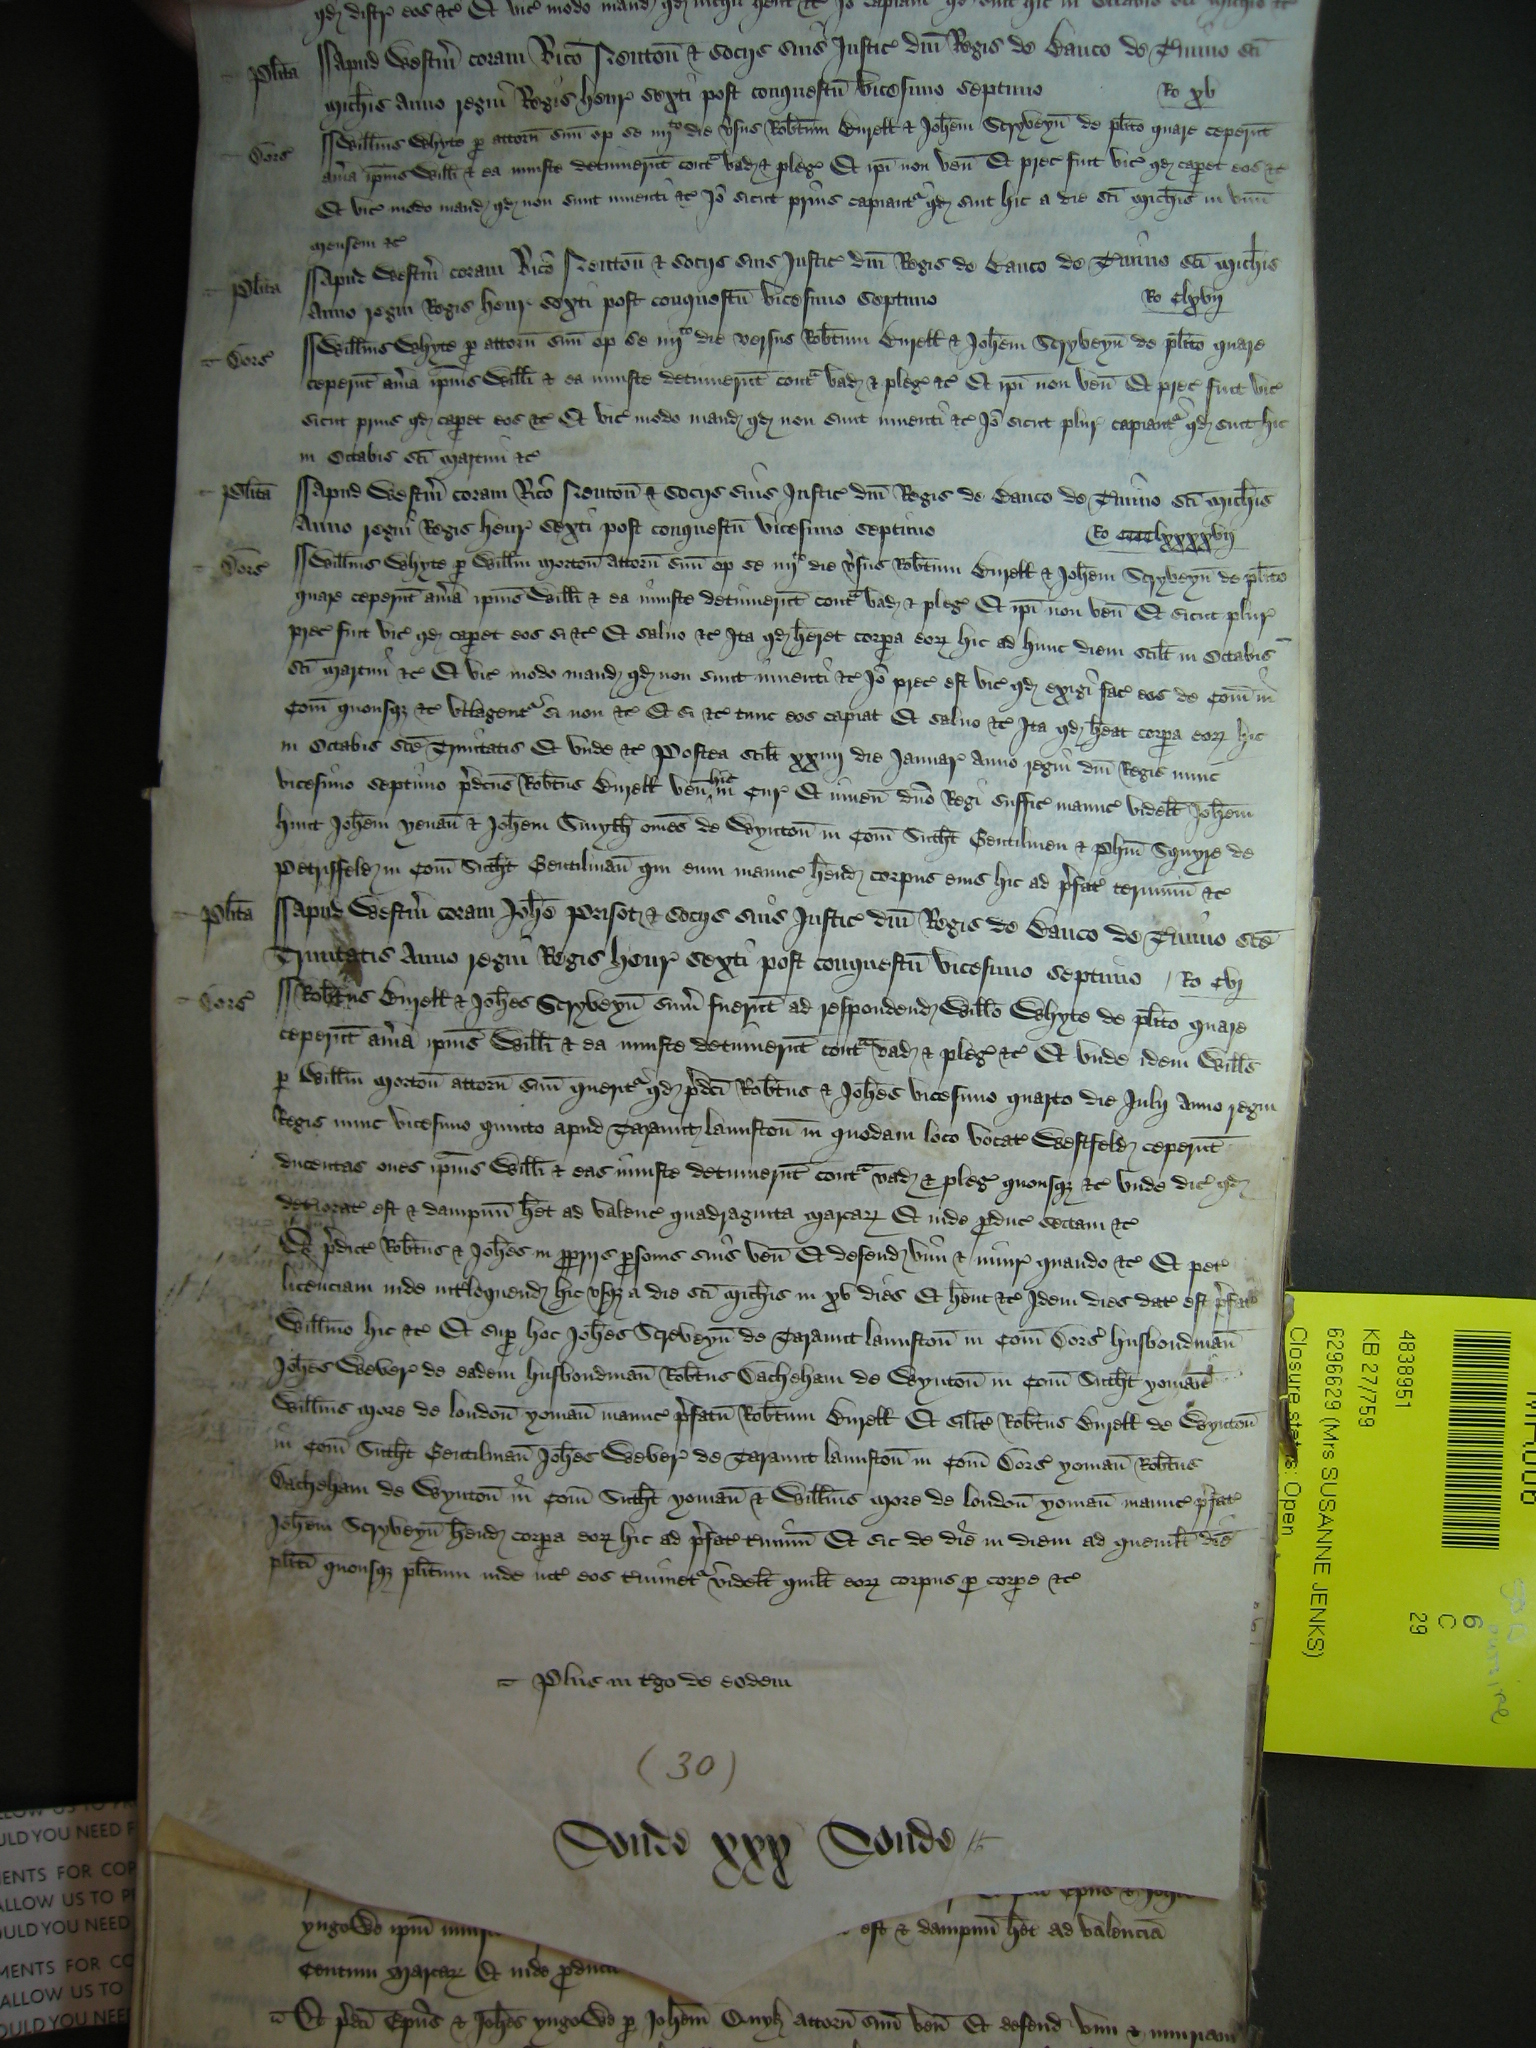 Plita Apud Westm̄ coram Ric̄o Neuton̄ & Socijs suis Justic̄ dn̄i Regis de Banco de T̄mino sc̄i
Mich̄is Anno regni Regis Henr̄ sexti post conquestū vicesimo septimo Ro xv
Dors̄ Will̄ms Whyte p attorn̄ suū op se iiijto die v̄sus Rob̄tum Burell & Joh̄em Scryveyn̄ de pl̄ito quare ceperūt
aīa ip̄ius Will̄i & ea iniuste detinuerūt cont̄ vad̄ & pleḡ Et ip̄i non ven̄ Et prec̄ fuit vic̄ qd̄ capet eos &c̄
Et vic̄ modo mand̄ qd̄ non sunt inuenti &c̄ Jō sicut prius capiant̄ qd̄ sint hic a die sc̄i Mich̄is in vnū
mensem &c̄
Plita Apud Westm̄ coram Ric̄o Neuton̄ & Socijs suis Justic̄ dn̄i Regis de Banco de T̄mino sc̄i Mich̄is
Anno regni Regis Henr̄ sexti post conquestū vicesimo septimo Ro Clxvij
Dors̄ Will̄ms Whyte p attorn̄ suū op se iiijto die versus Rob̄tum Burell & Joh̄em Scryveyn̄ de pl̄ito quare
ceperūt aīa ip̄ius Will̄i & ea iniuste detinuerūt cont̄ vad̄ & pleḡ &c̄ Et ip̄i non ven̄ Et prec̄ fuit vic̄
sicut prius qd̄ capet eos &c̄ Et vic̄ modo mand̄ qd̄ non sunt inuenti &c̄ Jō sicut plur̄ capiant̄ qd̄ sint hic
in Octabis sc̄i Martini &c̄
Plita Apud Westm̄ coram Ric̄o Neuton̄ & Socijs suis Justic̄ dn̄i Regis de Banco de T̄mino sc̄i Mich̄is
Anno regni Regis Henr̄ sexti post conquestū vicesimo septimo Ro CCCClxxxxvij
Dors̄ Will̄ms Whyte p Will̄m Morton̄ attorn̄ suū op se iiijto die v̄sus Rob̄tum Burell & Joh̄em Scryveyn̄ de pl̄ito
quare ceperūt aīa ip̄ius Will̄i & ea iniuste detinuerūt cont̄ vad̄ & pleḡ Et ip̄i non ven̄ Et sicut plur̄
prec̄ fuit vic̄ qd̄ capet eos si &c̄ Et saluo &c̄ Ita qd̄ h̄eret corpa eoꝝ hic ad hunc diem scil̄t in Octabis
sc̄i Martini &c̄ Et vic̄ modo mand̄ qd̄ non sunt inuenti &c̄ Jō prec̄ est vic̄ qd̄ exigi fac̄ eos de Com̄ in
Com̄ quousqꝫ &c̄ vtlagent̄ si non &c̄ Et si &c̄ tunc eos capiat Et saluo &c̄ Ita qd̄ h̄eat corpa eoꝝ hic
in Octabis sc̄e Trinitatis Et vnde &c̄ Postea scil̄t xxiiij die Januar̄ Anno regni dn̄i Regis nunc
vicesimo septimo p̄dcūs Rob̄tus Burell ven̄ hic in Cur̄ Et inuen̄ dn̄o Regi suffic̄ manuc̄ videl̄t Joh̄em
Hunt Joh̄em yenan̄ & Joh̄em Smyth om̄es de Wynton̄ in Com̄ Suth̄t Gentilmen & Ph̄m Squyre de
Petrisfeld̄ in Com̄ Suth̄t Gentilman̄ qui eum manuc̄ h̄end̄ corpus eius hic ad p̄fat̄ terminū &c̄
Plita Apud Westm̄ coram Joh̄e Prisot & Socijs suis Justic̄ dn̄i Regis de Banco de T̄mino sc̄e
Trinitatis Anno regni Regis Henr̄ sexti post conquestū vicesimo septimo Ro Cvj
Dors̄ Rob̄tus Burell & Joh̄es Scryveyn̄ sum̄ fuerūt ad respondend̄ Will̄o Whyte de pl̄ito quare
ceperūt aīa ip̄ius Will̄i & ea iniuste detinuerūt cont̄ vad̄ & pleḡ &c̄ Et vnde idem Will̄s
p Will̄m Morton̄ attorn̄ suū querit̄ qd̄ p̄dc̄i Rob̄tus & Joh̄es vicesimo quarto die Julij Anno regni
Regis nunc vicesimo quinto apud Tarannt launston̄ in quodam loco vocat̄ Westfeld̄ ceperūt
ducentas oues ip̄ius Will̄i & eas iniuste detinuerūt cont̄ vad̄ & pleḡ quousqꝫ &c̄ vnde dic̄ qd̄
det̄iorat̄ est & dampnū h̄et ad valenc̄ quadraginta marcaꝝ Et inde p̄duc̄ sectam &c̄
Et p̄dict̄ Rob̄tus & Joh̄es in pprijs psonis suis ven̄ Et defend̄ vim & iniur̄ quando &c̄ Et pet̄
licenciam inde int̄loquend̄ hic vsqꝫ a die sc̄i Mich̄is in xv dies Et h̄ent &c̄ Idem dies dat̄ est p̄fat̄
Will̄mo hic &c̄ Et sup hoc Joh̄es Scryveyn̄ de Tarannt launston̄ in Com̄ Dors̄ husbondman̄
Joh̄es Wever̄ de eadem husbondman̄ Rob̄tus Cacheham de Wynton̄ in Com̄ Suth̄t yoman̄
Will̄ms More de london̄ yoman̄ manuc̄ p̄fatū Rob̄tum Burell Et sil̄it Rob̄tus Burell de Wynton̄
in Com̄ Suth̄t Gentilman̄ Joh̄es Wever̄ de Tarannt launston̄ in Com̄ Dors̄ yoman̄ Rob̄tus
Cacheham de Wynton̄ in Com̄ Suth̄t yoman̄ & Will̄ms More de london̄ yoman̄ manuc̄ p̄fat̄
Joh̄em Scryveyn̄ h̄end̄ corpa eoꝝ hic ad p̄fat̄ t̄minū Et sic de die in diem ad quemlt̄ diē
pl̄iti quousqꝫ pl̄itum inde int̄ eos t̄minet̄ videl̄t quil̄t eoꝝ corpus p corpe &c̄
Plus in t̄go de eodem
(30)
Conde xxx Conde
yngowe ipm̄ est & dampnū h̄et ad valenciā
Centum marcaꝝ Et inde
Et p̄dc̄i Epūs & Joh̄es yngowe p Joh̄em Onyk attorn̄ suū ven̄ Et defend̄ vim & iniuriam
4838951
KB 27/759
6296629 (Mrs SUSANNE JENKS)
Closure status: Open
6
C
29
ULD YOU NEED
MENTS FOR COP
ALLOW US TO
OULD YOU NEED
MENTS FOR CO
ALLOW US TO
OULD YOU NEE